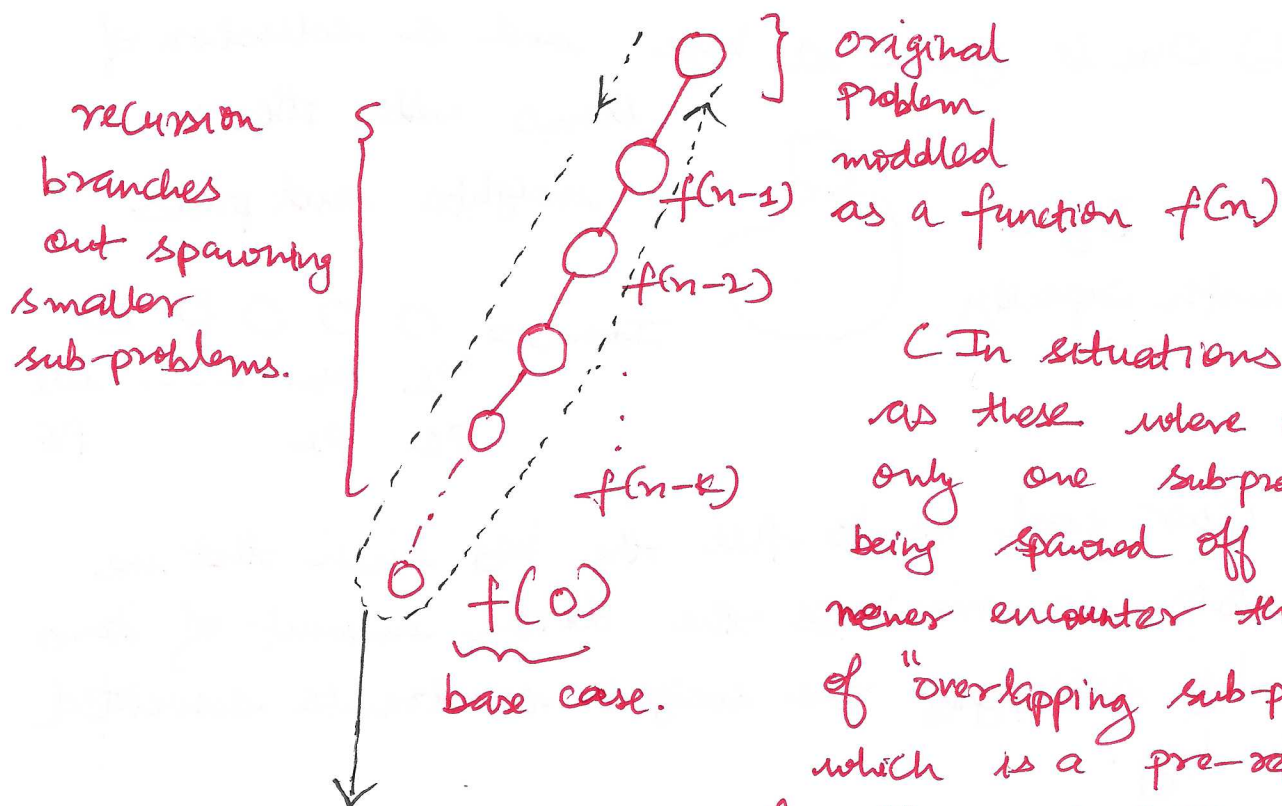 recursion
branches
out spawning
smaller
sub-problems.
original
problem
moddled
as a function f(n)
f(n-1)
f(n-2)
f(n-k)
f(0)
base case.
(In situations
as these where
only one sub-pro
being spawned off
never encounter th
of "overlapping sub-p
which is a pre-re